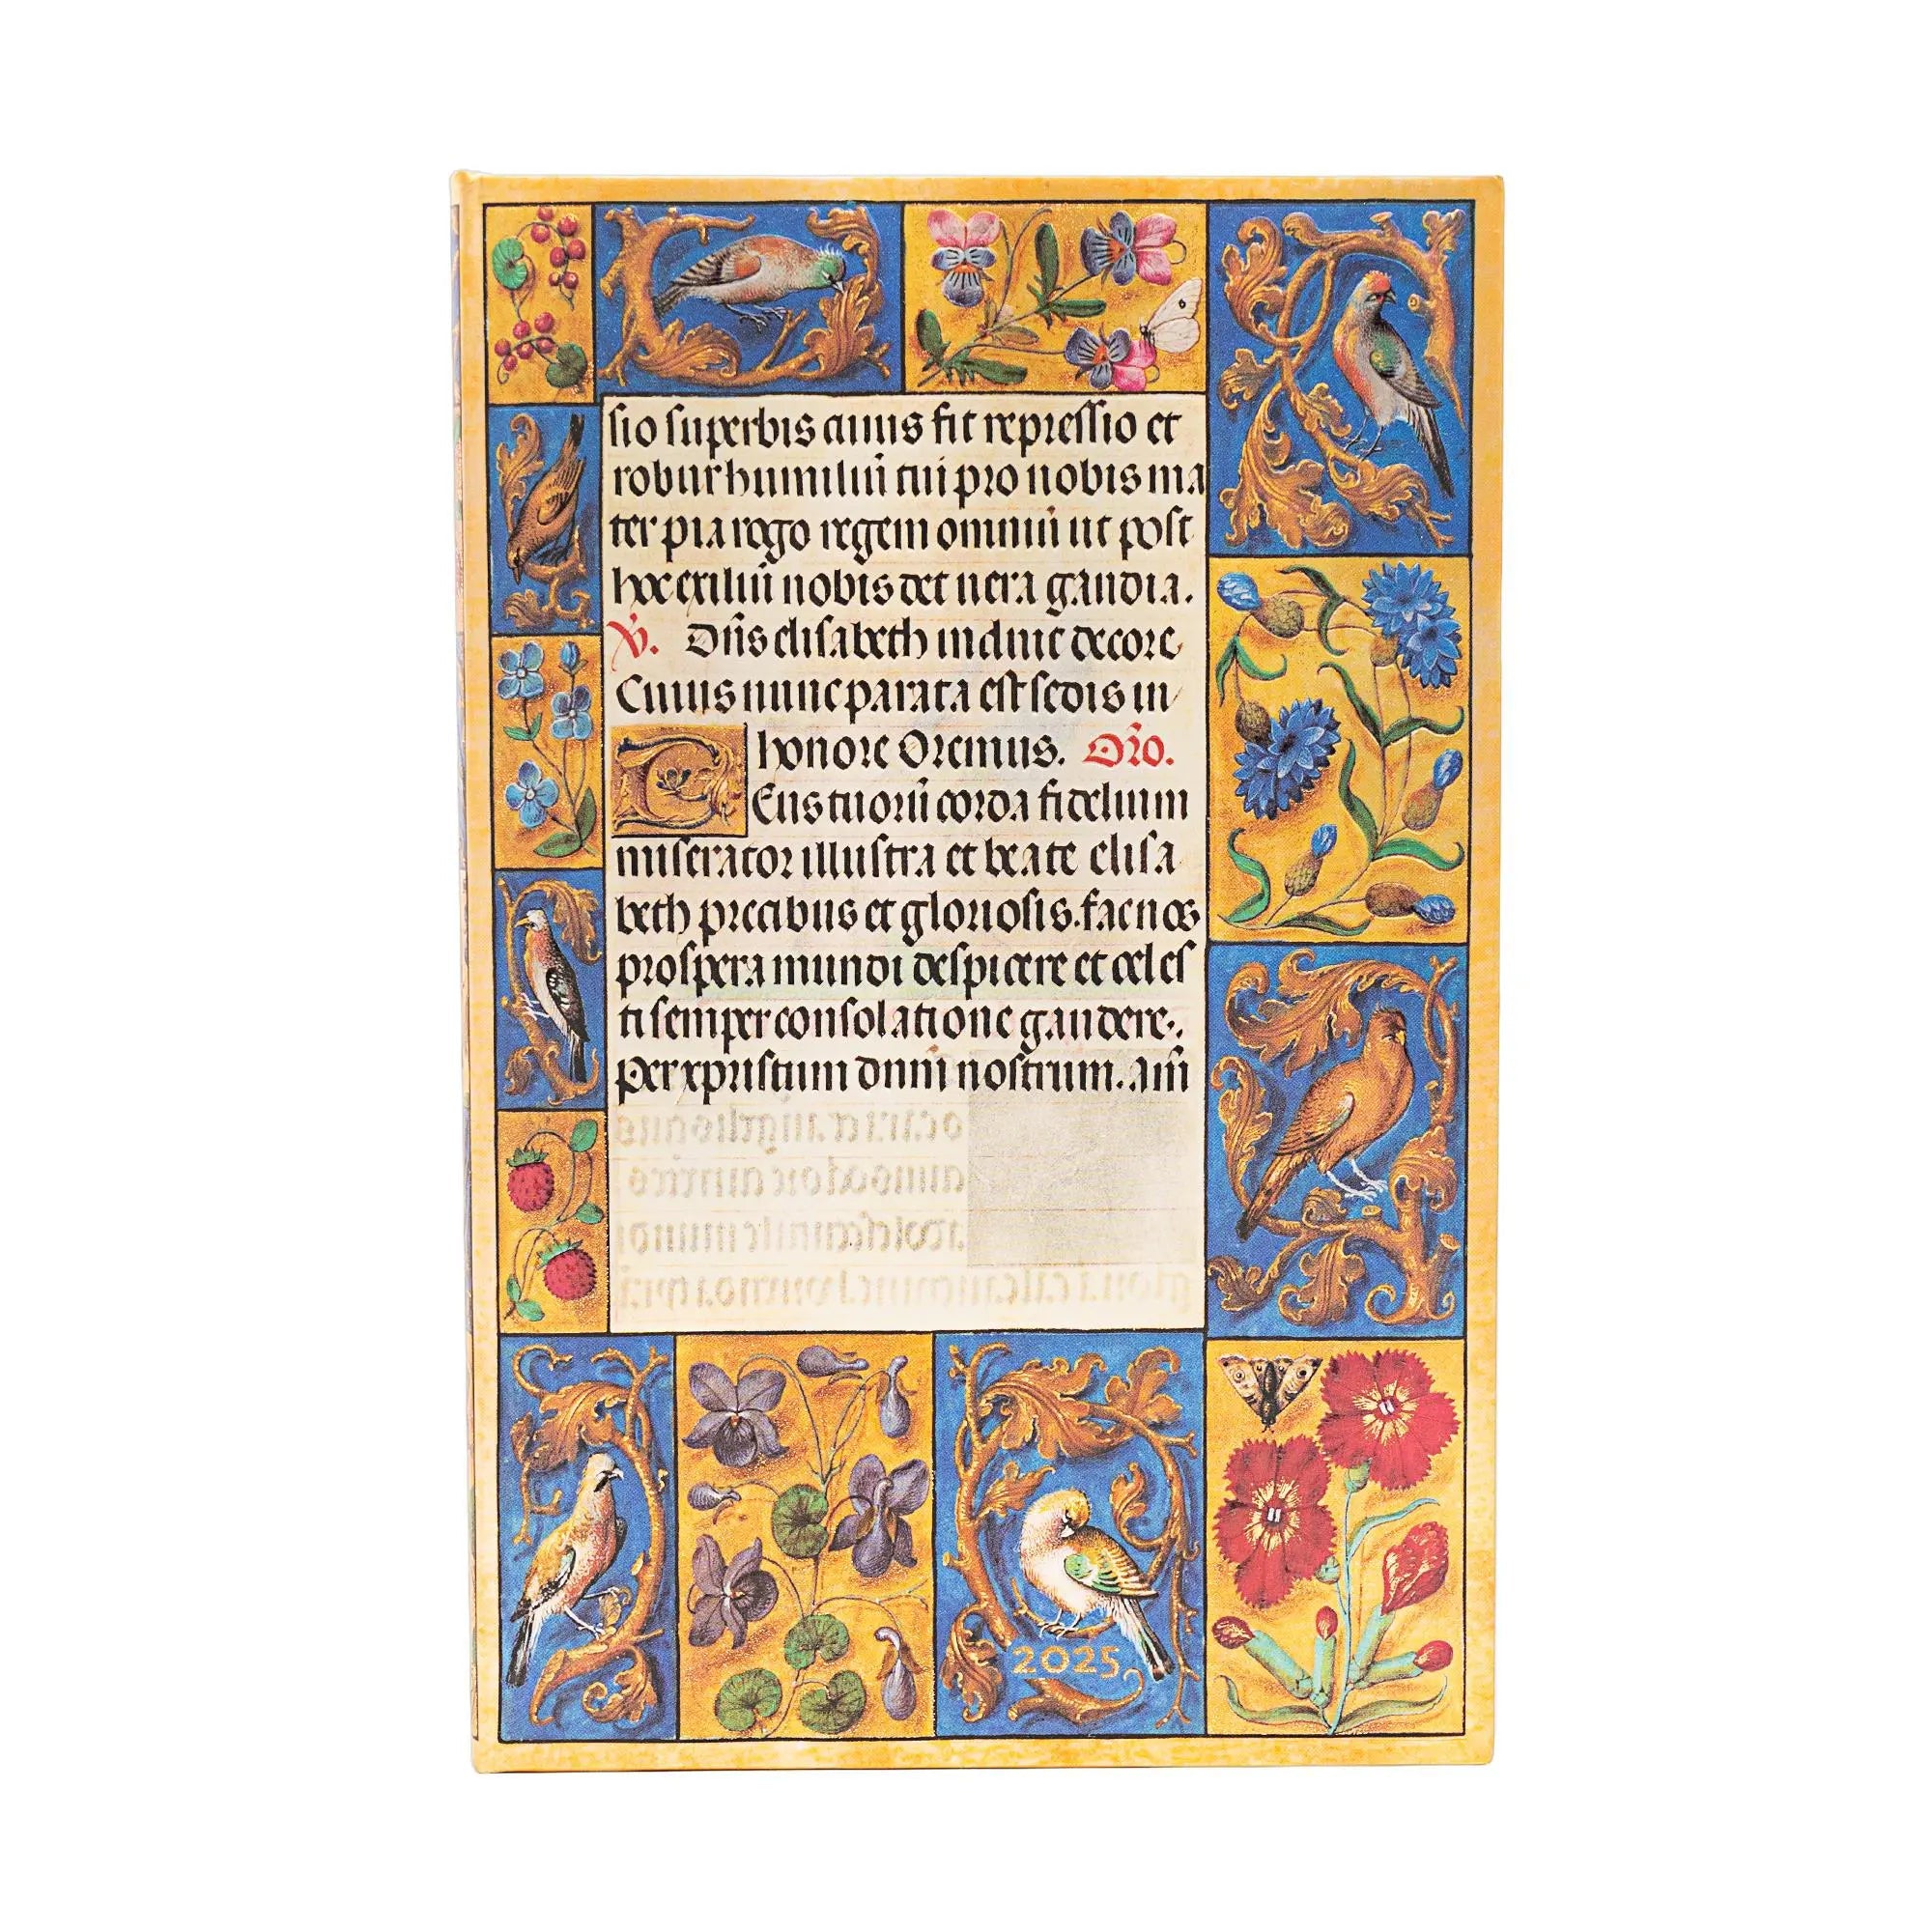 sio superbis cuius fit repressio et
robur humiliū tui pro nobis ma
ter pia rogo regem omniū ut post
hoc exiliū nobis det uera gaudia.
℣. Dn̄s elisabeth induit decore
Cuius nunc parata est sedis in
honore Oremus. Or̄o.
Deus tuorū corda fidelium
miserator illustra et beate elisa
beth precibus et gloriosis. fac nos
prospera mundi despicere et celes
ti semper consolatione gaudere.
Per xpristum dnm̄ nostrum. am̄
2025